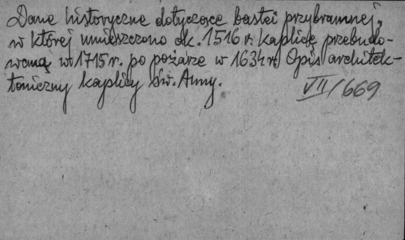 Dane historyczne dotyczące bastei przybramnej,
w której umieszczono ok. 1516 r. kaplicę przebudo-
waną w 1715 r. po pożarze w 1634 r. Opis architek-
toniczny kaplicy św. Anny.
VII/669